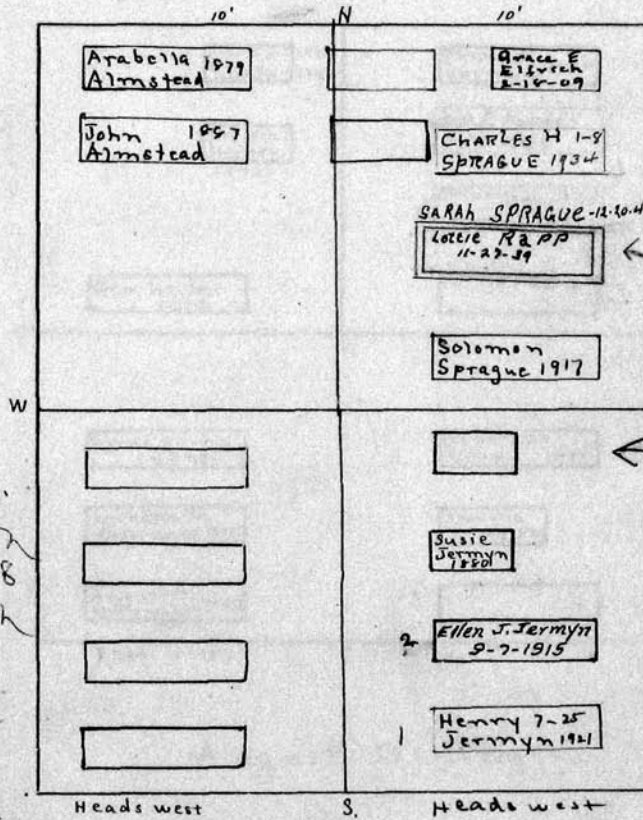 10' N 10'
Arabella 1879
Almstead
Grace E
2-18-09
John 1887
Almstead
CHARLES H 1-8
SPRAGUE 1934
SARAH SPRAGUE-12-20-4
Lottie RAPP
11-27-39
Solomon
Sprague 1917
W
Susie
Jermyn
1880
2 Ellen J. Jermyn
9-7-1915
1 Henry 7-25
Jermyn 1921
Heads west S. Heads west